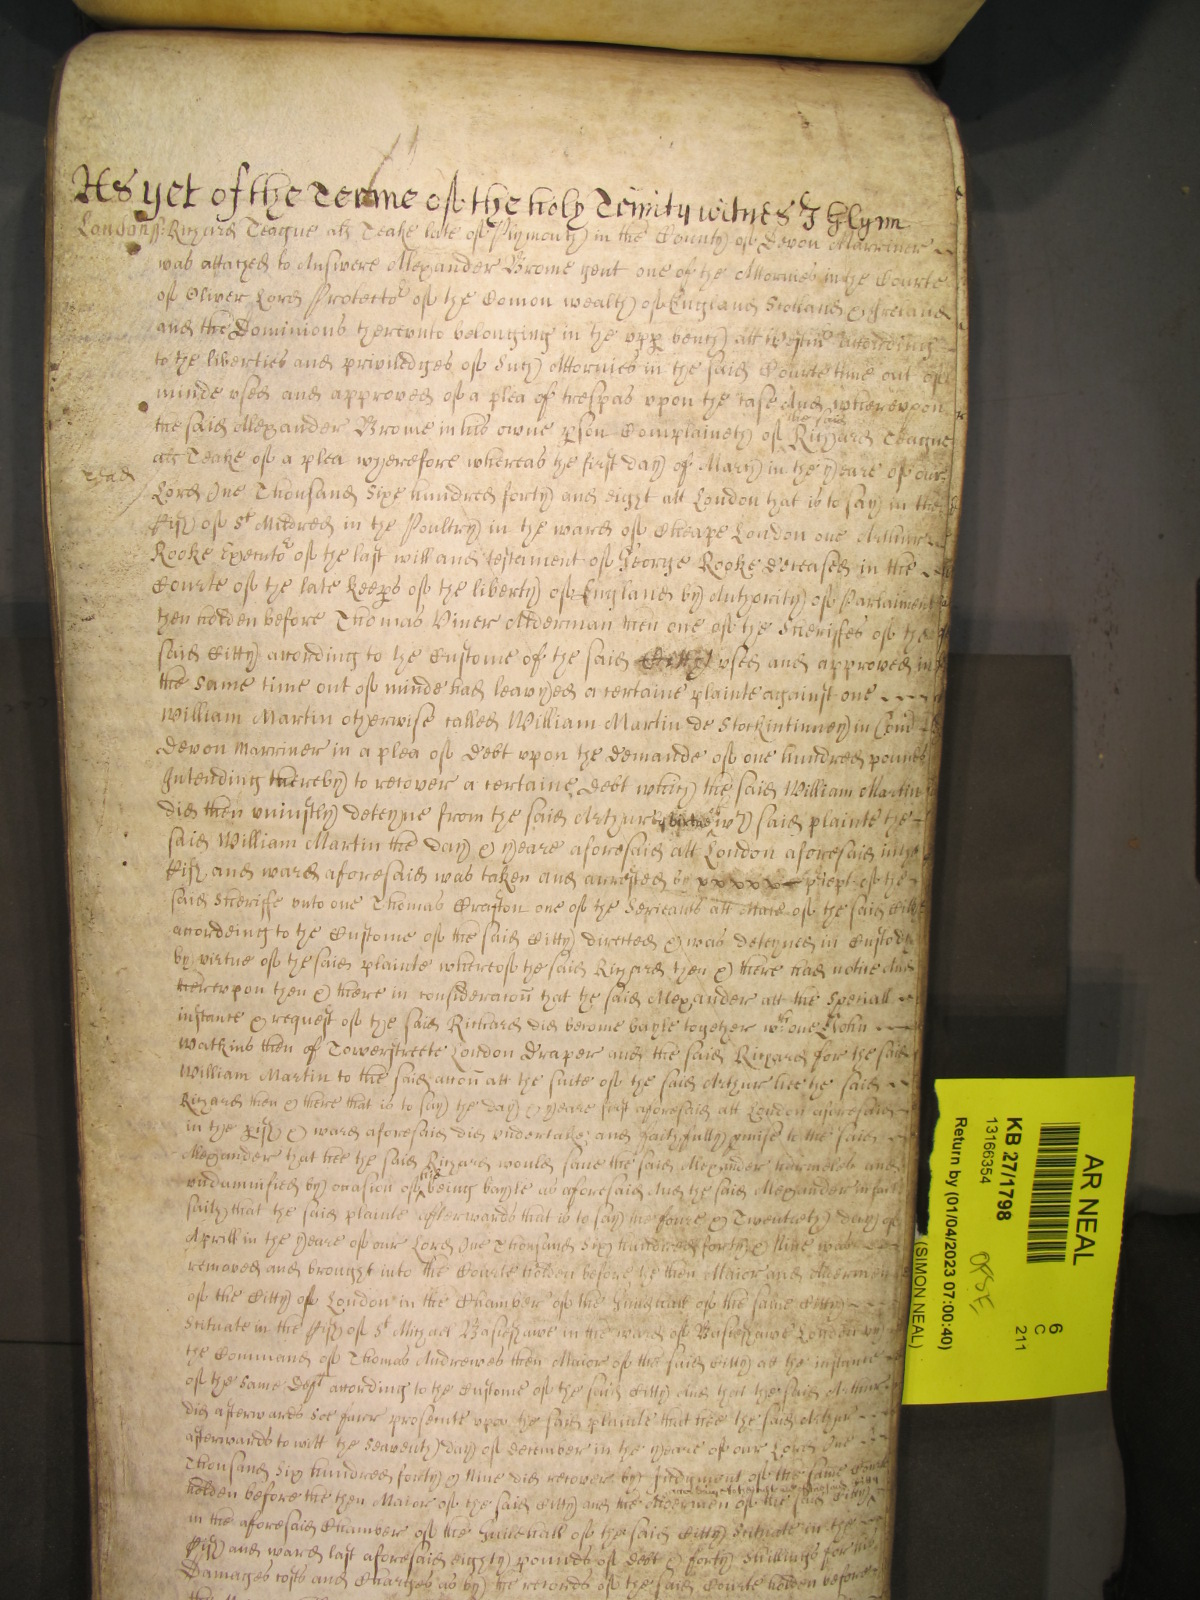 As yet of the Terme of the holy Trinity witnes J Glynn
London ss: Richard Teague als Teake late of Plymouth in the County of Devon Marriner
was attached to Answere Alexander Brome gent one of the Attornies in the Courte
of Oliver Lord Protector of the Comon wealth of England Scotland & Ireland
and the Dominions thereunto belonging in the upp bench att Westm according
to the liberties and priviledges of Such Attornies in the said Courte time out of
minde used and approved of a plea of trespas upon the case And whereupon
the said Alexander Brome in his owne pson Complaineth of the said Richard Teague
als Teake of a plea wherefore whereas the first day of May in the yeare of our
Lord One Thousand Sixe hundred forty and eight att London that is to say in the
Pish of St Mildred in the Poultry in the ward of Cheape London one Arthur
Rooke Executor of the last will and testament of George Rooke deceased in the
Courte of the late keeps of the liberty of England by Authority of Parliament
then holden before Thomas Viner Alderman then one of the Sheriffes of the
said Citty according to the Custome of the said Citty used and approved in
the same time out of minde had leavyed a certaine plainte against one
William Martin otherwise called William Martin de Stockintinney in Com
Devon Marriner in a plea of debt upon the demande of one hundred pounds
Intending thereby to recover a certaine debt which the said William Martin
did then uniustly deteyne from the said Arthur said plainte the
said William Martin the day & yeare aforesaid att London aforesaid in the
Pish and ward aforesaid was taken and arrested by pcept of the
said Sheriffe unto one Thomas Crafton one of the Serieants att Mace of the said Citty
accordeing to the Custome of the said Citty directed & was deteyned in Custody
by virtue of the said plainte whereof the said Richard then & there had notice And
thereupon then & there in consideracon that the said Alexander att the speciall
instance & request of the said Richard did become bayle together wth one John
Watkins then of Towerstreete London Draper and the said Richard for the said
William Martin to the said accon att the suite of the said Arthur hee the said
Richard then & there that is to say the day & yeare first aforesaid att London aforesaid
in the pish & ward aforesaid did undertake and faithfully pmise to the said
Alexander that hee the said Richard would save the said Alexander harmeles and
undamnified by occasion of his being bayle as aforesaid And the said Alexander in fact
saith that the said plainte afterwards that is to say the foure & Twentieth day of
Aprill in the yeare of our Lord One Thousand Six hundred forty & Nine was
removed and brought into the Courte holden before the then Maior and Aldermen
of the Citty of London in the Chamber of the Guildhall of the same Citty
Scituate in the Pish of St Michael Bassieshawe in the ward of Bassieshawe London by
the Command of Thomas Andrewes then Maior of the said Citty at the instance
of the same Deft according to the Custome of the said Citty And that the said Arthur
did afterwards soe farr prosecute upon the said plainte that hee the said Arthur
afterwards to witt the Seaventh day of December in the yeare of our Lord One
Thousand Six hundred forty & Nine did recover by Iudgment of the same Courte
holden before the then Maior of the said Citty and the Aldermen of the said Citty
in the aforesaid Chamber of the Guildhall of the said Citty Scituate in the
Pish and ward last aforesaid eighty pounds of debt & forty Shillings for his
Damages costs and Charges as by the records of the said Courte holden before
AR NEAL
KB 27/1798
13166354
Return by (01/04/2023 07:00:40)
(SIMON NEAL)
6
C
211